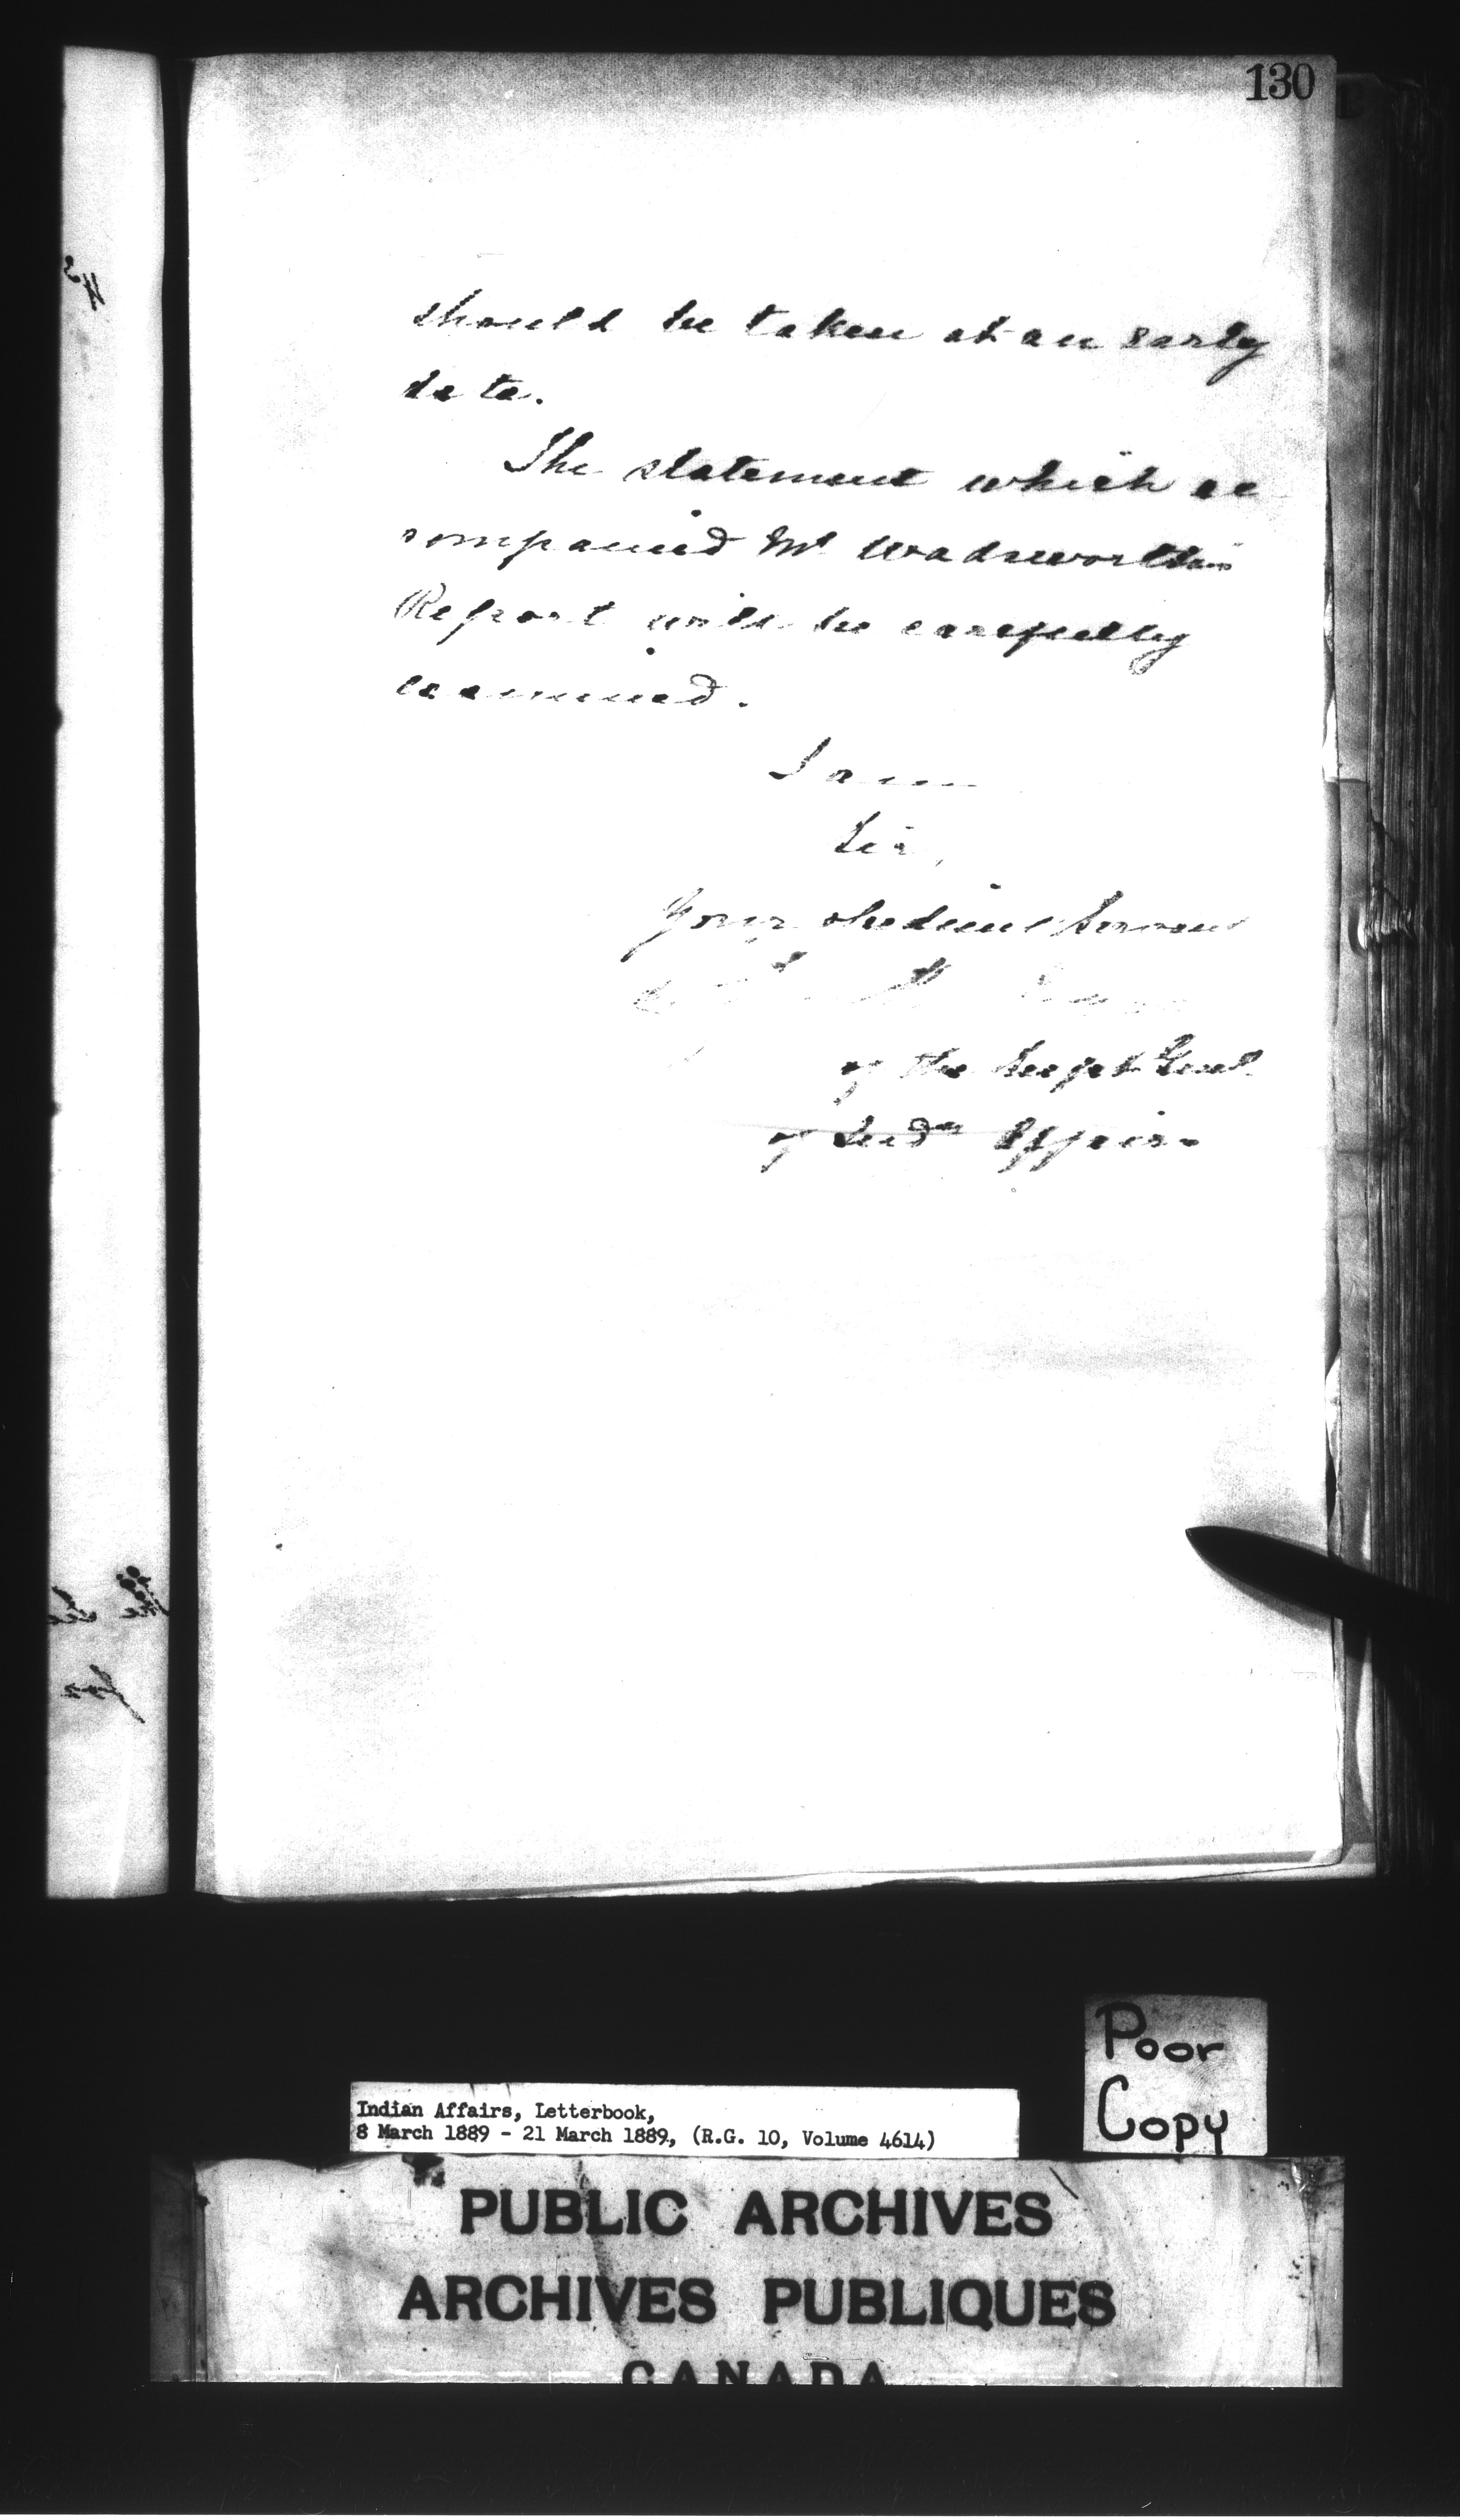 130
should be taken at an early
date.
The statement which ac
companied Mr Wadsworth's
Report will be carefully
examined.
I am
Sir,
Your obedient Servant
of the Supt Genl
of Indn Affairs
the
for
Poor
Copy
Indian Affairs, Letterbook,
8 March 1889 - 21 March 1889, (R.G. 10, Volume 4614)
PUBLIC ARCHIVES
ARCHIVES PUBLIQUES
CANADA